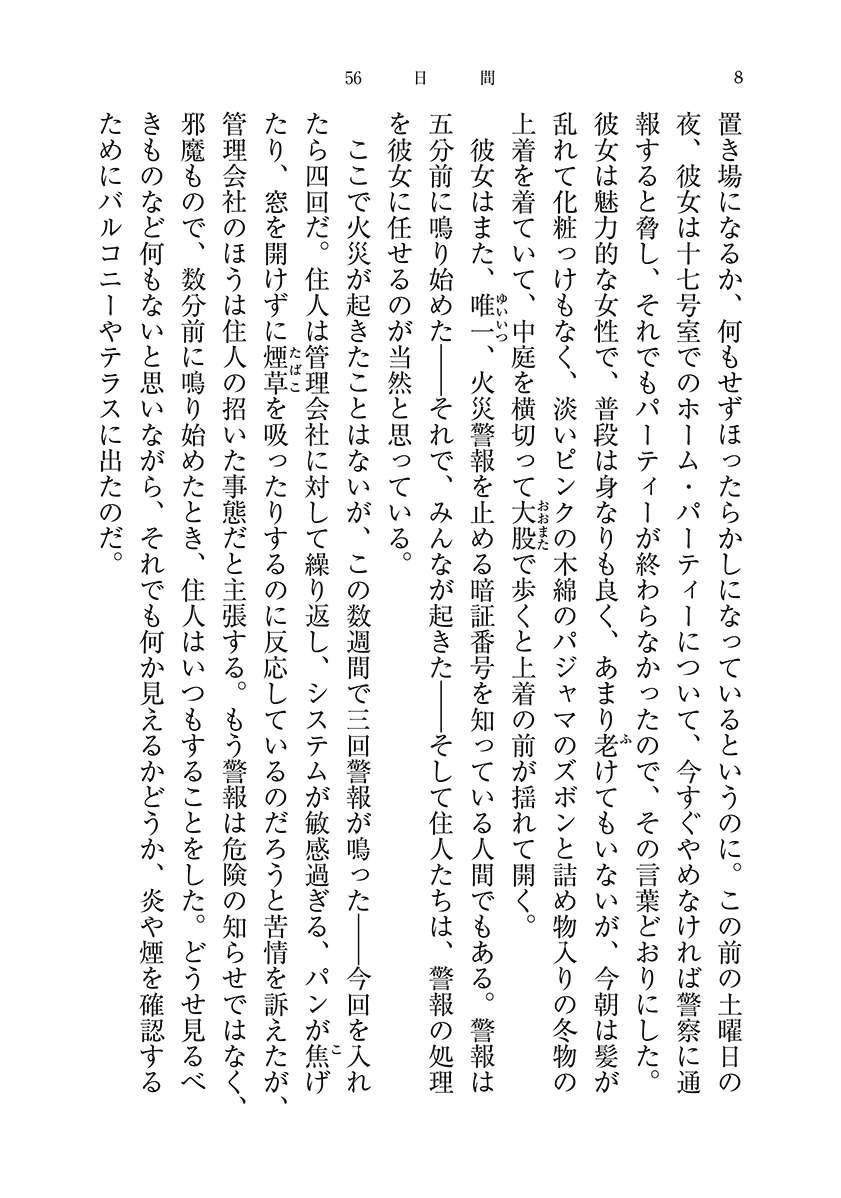 8
56日間
置き場になるか、何もせずほったらかしになっているというのに。この前の土曜日の
夜、彼女は十七号室でのホーム・パーティーについて、今すぐやめなければ警察に通
報すると脅し、それでもパーティーが終わらなかったので、その言葉どおりにした。
彼女は魅力的な女性で、普段は身なりも良く、あまり老けてもいないが、今朝は髪が
乱れて化粧っけもなく、淡いピンクの木綿のパジャマのズボンと詰め物入りの冬物の
上着を着ていて、中庭を横切って大股で歩くと上着の前が揺れて開く。
彼女はまた、唯一、火災警報を止める暗証番号を知っている人間でもある。警報は
五分前に鳴り始めた――それで、みんなが起きた――そして住人たちは、警報の処理
を彼女に任せるのが当然と思っている。
ここで火災が起きたことはないが、この数週間で三回警報が鳴った――今回を入れ
たら四回だ。住人は管理会社に対して繰り返し、システムが敏感過ぎる、パンが焦げ
たり、窓を開けずに煙草を吸ったりするのに反応しているのだろうと苦情を訴えたが、
管理会社のほうは住人の招いた事態だと主張する。もう警報は危険の知らせではなく、
邪魔もので、数分前に鳴り始めたとき、住人はいつもすることをした。どうせ見るべ
きものなど何もないと思いながら、それでも何か見えるかどうか、炎や煙を確認する
ためにバルコニーやテラスに出たのだ。
ふ
おおまた
ゆいいつ
こ
たばこ